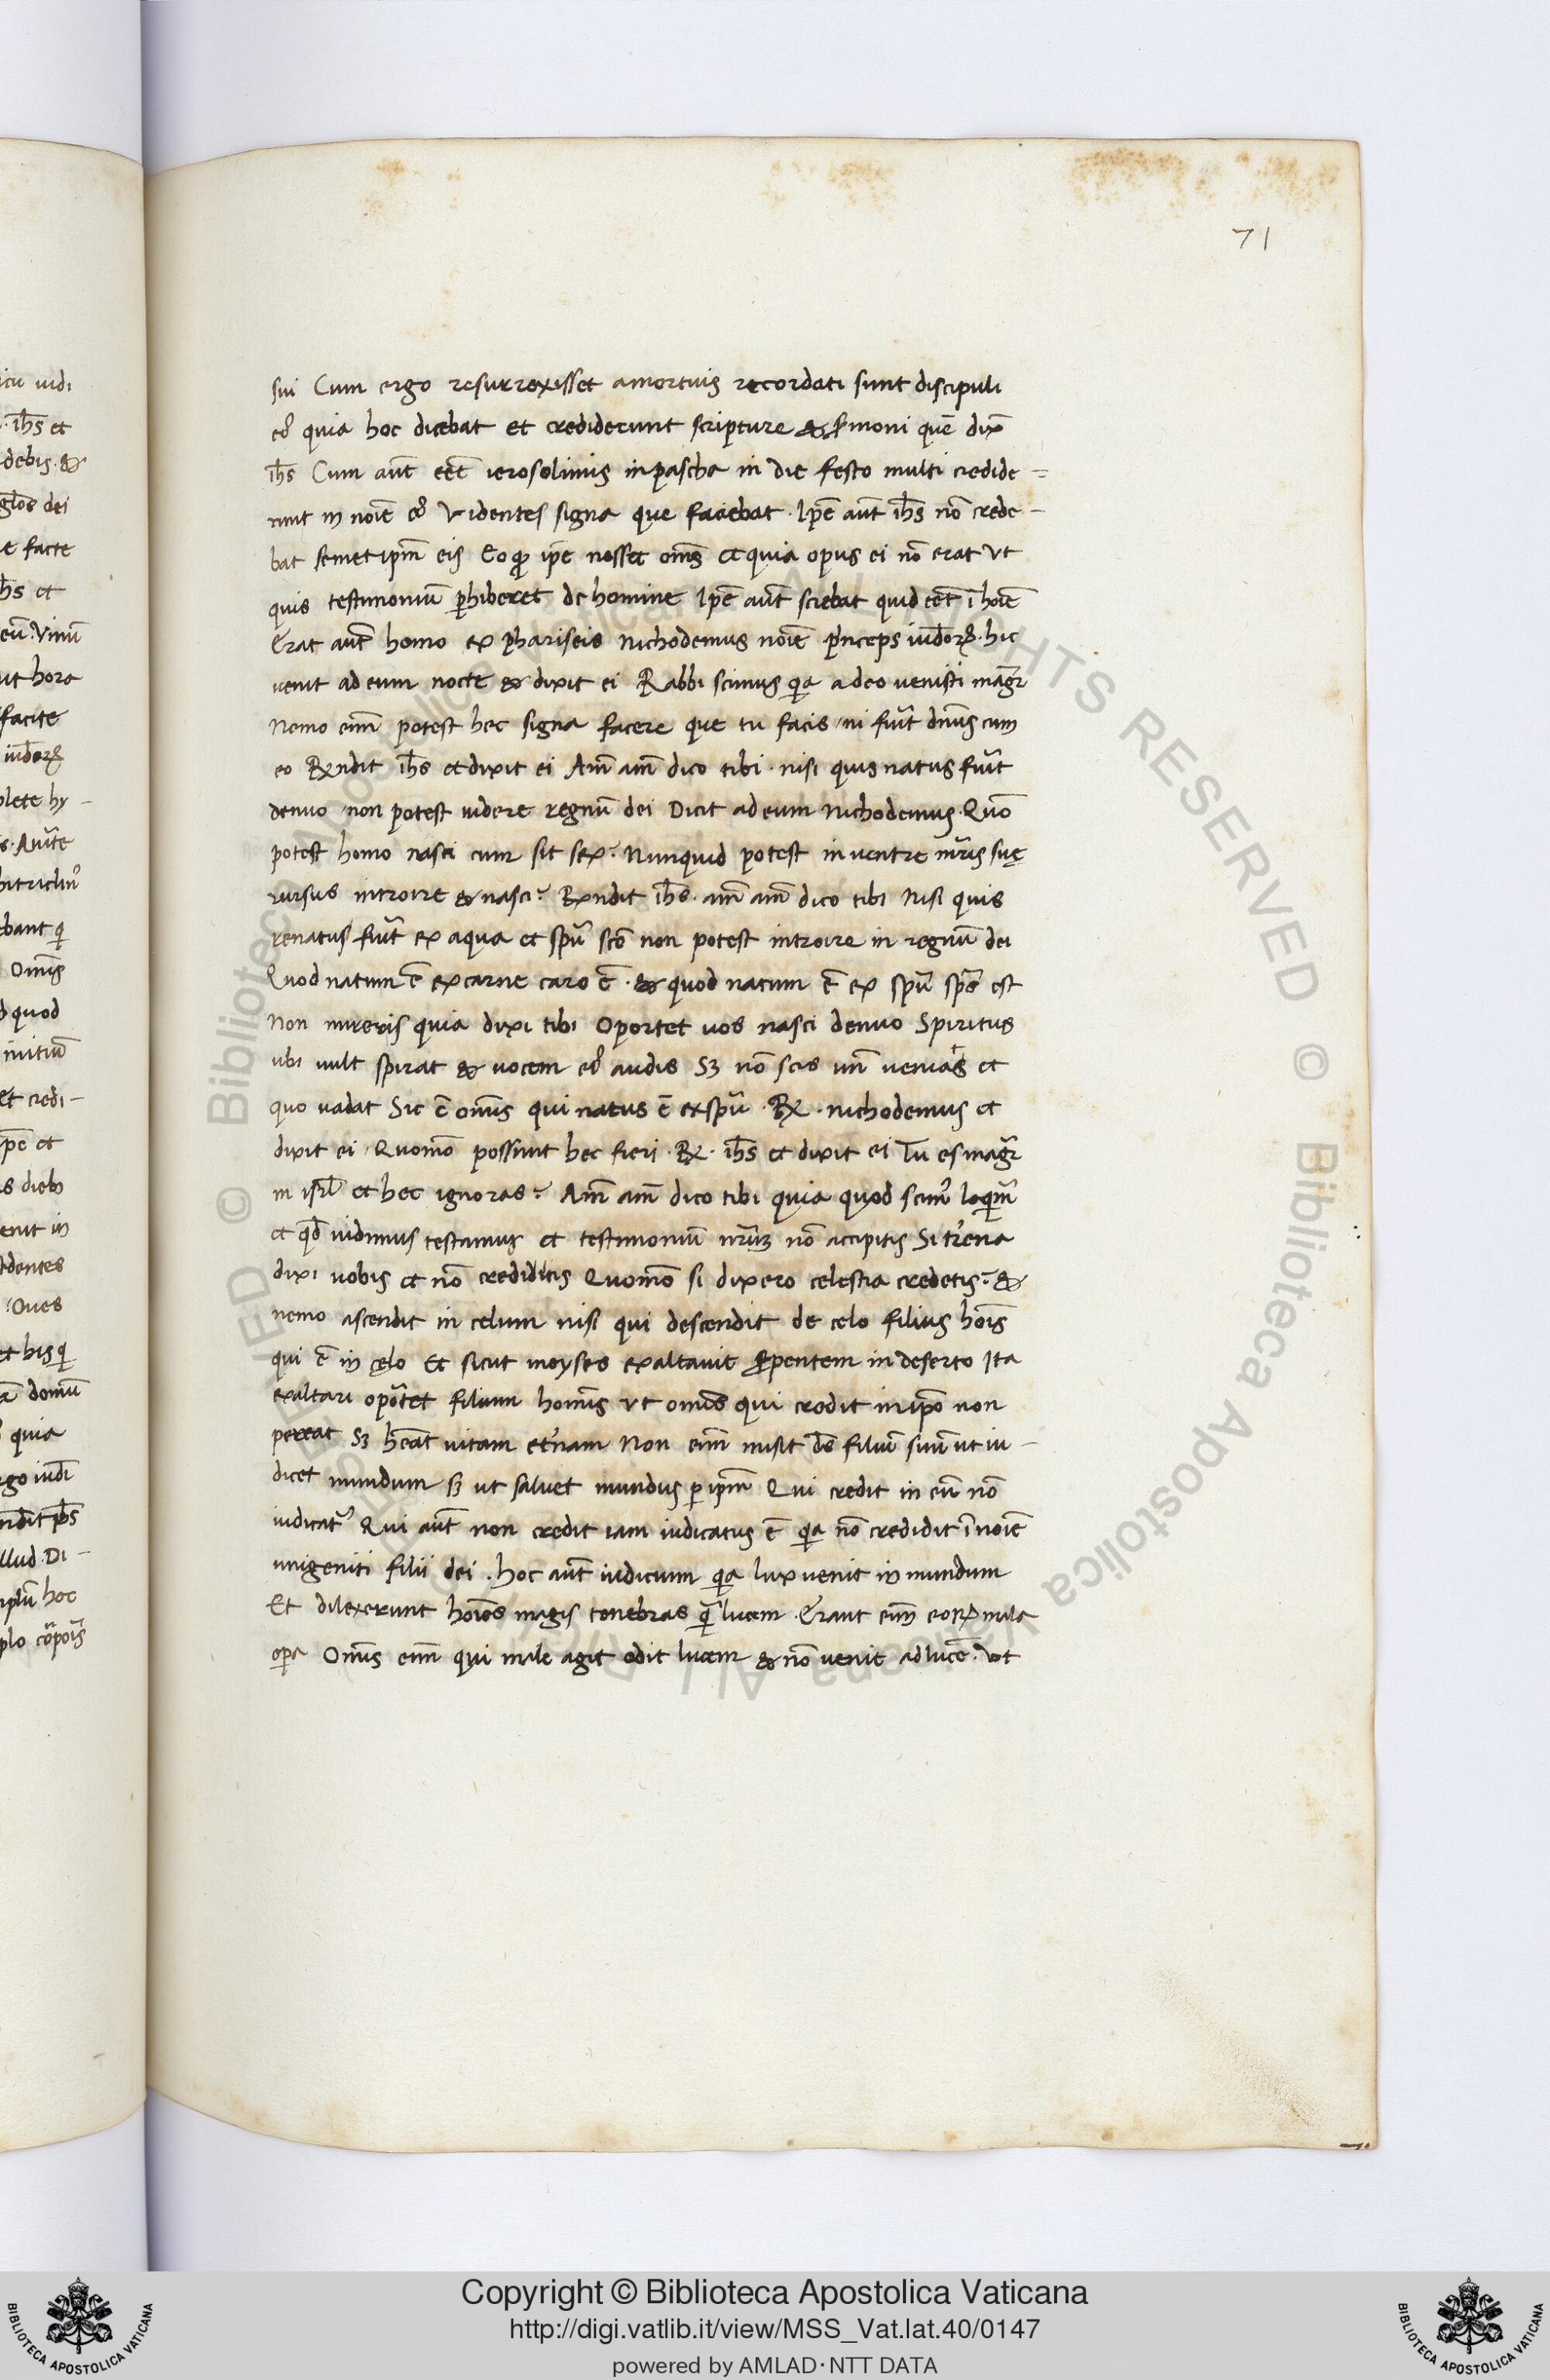 71
sui Cum ergo resurrexisset amortuis recordati sunt discipuli
eꝰ quia hoc dicebat et crediderunt scripture & ẜmoni quē dix̄
ih̄s Cum aūt eēt ierosolimis in pascha in die festo multi credide =
runt in noīe eꝰ Videntes signa que faciebat . Ip̄e aūt ih̄s nō crede -
bat semetip̄m eis Eo ꝙ ip̄e nosset om̄s et quia opus ei nō erat vt
quis testimoniū ꝑhiberet de homine Ip̄e aūt sciebat quid eēt ī hoīe
Erat aūt homo ex phariseis Nichodemus noīe pͥnceps iud̄orꝝ . hic
uenit ad eum nocte & dixit ei Rabbi scimus qꝛ a deo uenisti mag̃r
Nemo eīm potest hec signa facere que tu facis / ni fuīt dn̄us cum
eo Rx̄ndit ih̄s et dixit ei Am̄ am̄ dico tibi . nisi quis natus fuīt
denuo non potest uidere regnū dei Dicit ad eum Nichodemus . Quō
potest homo nasci cum sit sex? Nunquid potest in uentre mr̃is suę
rursus introire & nasci? Rx̄ndit ih̄s . am̄ am̄ dico tibi Nisi quis
renatus fuīt ex aqua et spū scō non potest introire in regnū dei
Quod natum ē ex carne caro ē . & quod natum ē ex spū sp̄s est
Non mireris quia dixi tibi Oportet uos nasci denuo Spiritus
ubi uult spirat & uocem eꝰ audis Sꝫ nō scis un̄ uenias et
quo uadat Sic ē om̄is qui natus ē ex spū . Rx̄ . nichodemus et
dixit ei . Quomō possunt hec fieri . Rx̄ . ih̄s et dixit ei Tu es mag̃r
in isrl̄ et hec ignoras? Am̄ am̄ dico tibi quia quod scimꝰ loqimꝰ
et qd̄ uidimus testamur et testimoniū nr̄uꝫ nō accipitis Si tr̃ena
dixi uobis et nō crediditis Quomō si dixero celestia credetis? &
nemo ascendit in celum nisi qui descendit de celo filius hoīs
qui ē in cęlo Et sicut moyses exaltauit ẜpentem in deserto Ita
exaltari oportet filium hom̄is vt om̄is qui credit in ip̄o non
pereat Sꝫ hēat uitam et̄nam Non eīm misit d̄s filiū suū ut iu -
dicet mundum sꝫ ut saluet mundus ꝑ ip̄m Qui credit in eū nō
iudicat᷑ Qui aūt non credit iam iudicatus ē qꝛ nō credidit ī noīe
unigeniti filii dei . hoc aūt iudicium qꝛ lux uenit in mundum
Et dilexerunt hoīes magis tenebras q̃ lucem . Erant eīm eorꝝ mala
oꝑa Om̄is eīm qui male agit odit lucem & nō uenit ad lucē . vt
Copyright © Biblioteca Apostolica Vaticana
http://digi.vatlib.it/view/MSS_Vat.lat.40/0147
powered by AMLAD·NTT DATA
BIBLIOTECA APOSTOLICA VATICANA
BIBLIOTECA APOSTOLICA VATICANA